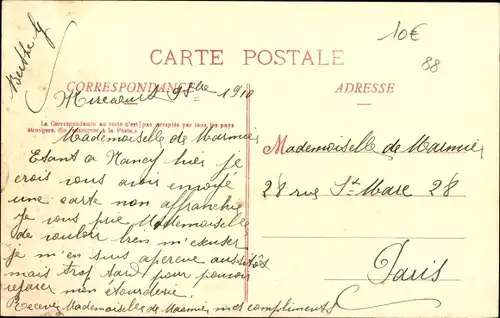 Berthe
10€
88
CARTE POSTALE
CORRESPONDANCE
ADRESSE
Mirecourt 9bre 1910
La Correspondance au recto n'est pas acceptée par tous les pays
étrangers. (Se renseigner à la Poste.)
Mademoiselle de Marmier
Etant à Nancy hier je
crois vous avoir envoyé
une carte non affranchie
Je vous prie Mademoiselle
de vouloir bien m'excuser
je m'en suis aperçue aussitôt
mais trop tard pour pouvoir
réparer mon étourderie.
Recevez Mademoiselle de Marmier mes compliments
Mademoiselle de Marmier
28 rue St Marc 28
Paris